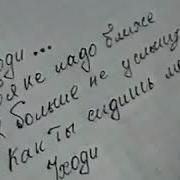 оди ...
я не надо ближе
больше не услыш
Как ты сидишь
Уходи